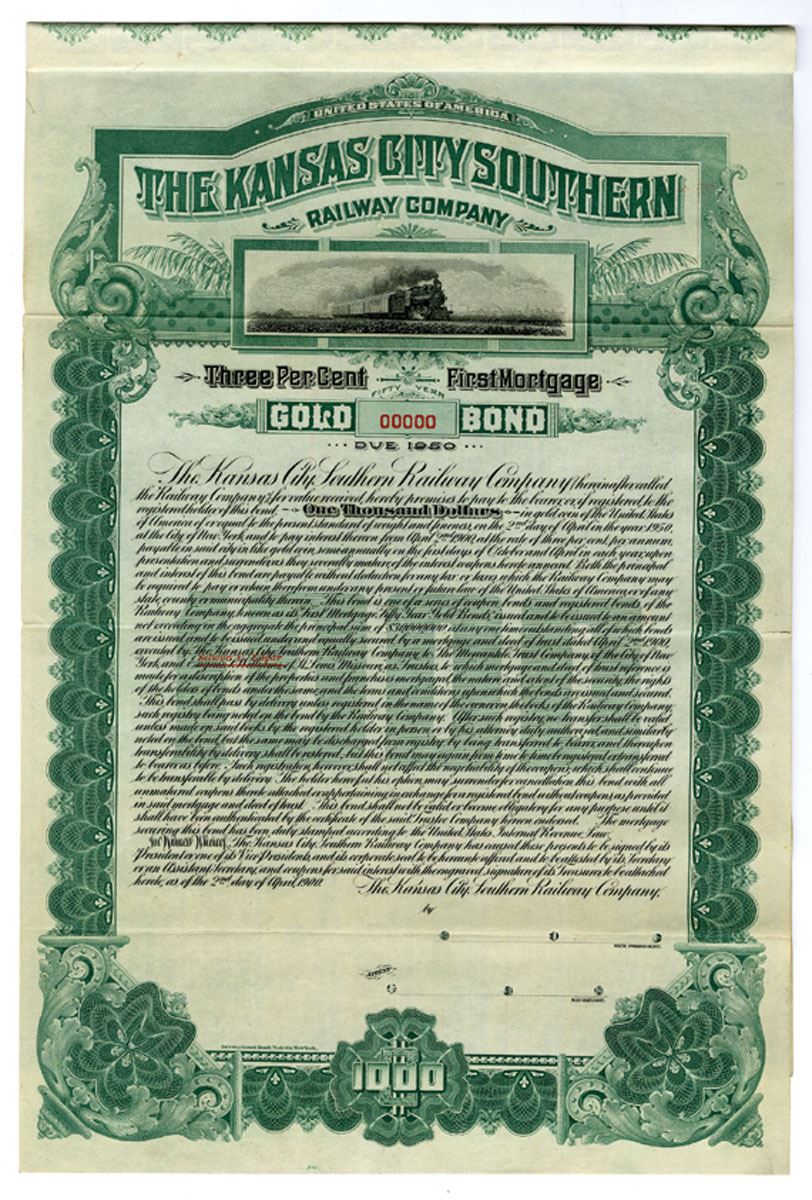 UNITED STATES OF AMERICA
THE KANSAS CITY SOUTHERN
RAILWAY COMPANY
Three Per Cent FIFTY YEAR First Mortgage
GOLD 00000 BOND
DUE 1950
The Kansas City Southern Railway Company (hereinafter called
the Railway Company) for value received, hereby promises to pay to the bearer, or, if registered, to the
registered holder of this bond, One Thousand Dollars in gold coin of the United States
of America of or equal to the present standard of weight and fineness, on the 2nd day of April in the year 1950,
at the City of New York, and to pay interest thereon from April 2nd 1900, at the rate of three per cent. per annum,
payable in said city in like gold coin, semi-annually on the first days of October and April in each year, upon
presentation and surrender, as they severally mature, of the interest coupons hereto annexed. Both the principal
and interest of this bond are payable without deduction for any tax or taxes, which the Railway Company may
be required to pay or retain therefrom under any present or future law of the United States of America, or of any
state, county or municipality therein. This bond is one of a series of coupon bonds and registered bonds of the
Railway Company, known as its First Mortgage Fifty Year Gold Bonds, issued and to be issued to an amount
not exceeding in the aggregate the principal sum of $30,000,000 at any one time outstanding, all of which bonds
are issued and to be issued under and equally secured by a mortgage and deed of trust dated April 2nd 1900,
executed by The Kansas City Southern Railway Company to The Mercantile Trust Company, of the City of New
York, and St. Louis, Missouri, as Trustees, to which mortgage and deed of trust reference is
made for a description of the properties and franchises mortgaged, the nature and extent of the security, the rights
of the holders of bonds under the same, and the terms and conditions upon which the bonds are issued and secured.
This bond shall pass by delivery unless registered in the name of the owner on the books of the Railway Company,
such registry being noted on the bond by the Railway Company. After such registry, no transfer shall be valid
unless made on said books by the registered holder in person or by his attorney duly authorized, and similarly
noted on the bond, but the same may be discharged from registry by being transferred to bearer, and thereupon
transferability by delivery shall be restored, but this bond may again from time to time be registered or transferred
to bearer as before. Such registration, however, shall not affect the negotiability of the coupons, which shall continue
to be transferable by delivery. The holder hereof at his option, may surrender for cancellation this bond with all
unmatured coupons thereto attached or appertaining in exchange for a registered bond without coupons as provided
in said mortgage and deed of trust. This bond shall not be valid or become obligatory for any purpose until it
shall have been authenticated by the certificate of the said Trustee Company hereon endorsed. The mortgage
securing this bond has been duly stamped according to the United States Internal Revenue Law.
In Witness Whereof, The Kansas City Southern Railway Company has caused these presents to be signed by its
President or one of its Vice Presidents, and its corporate seal to be hereunto affixed and to be attested by its Secretary
or an Assistant Secretary, and coupons for said interest with the engraved signature of its Treasurer to be attached
hereto, as of the 2nd day of April, 1900. The Kansas City Southern Railway Company,
by
VICE PRESIDENT.
ATTEST
SECRETARY.
International Bank Note Co. New York.
1000